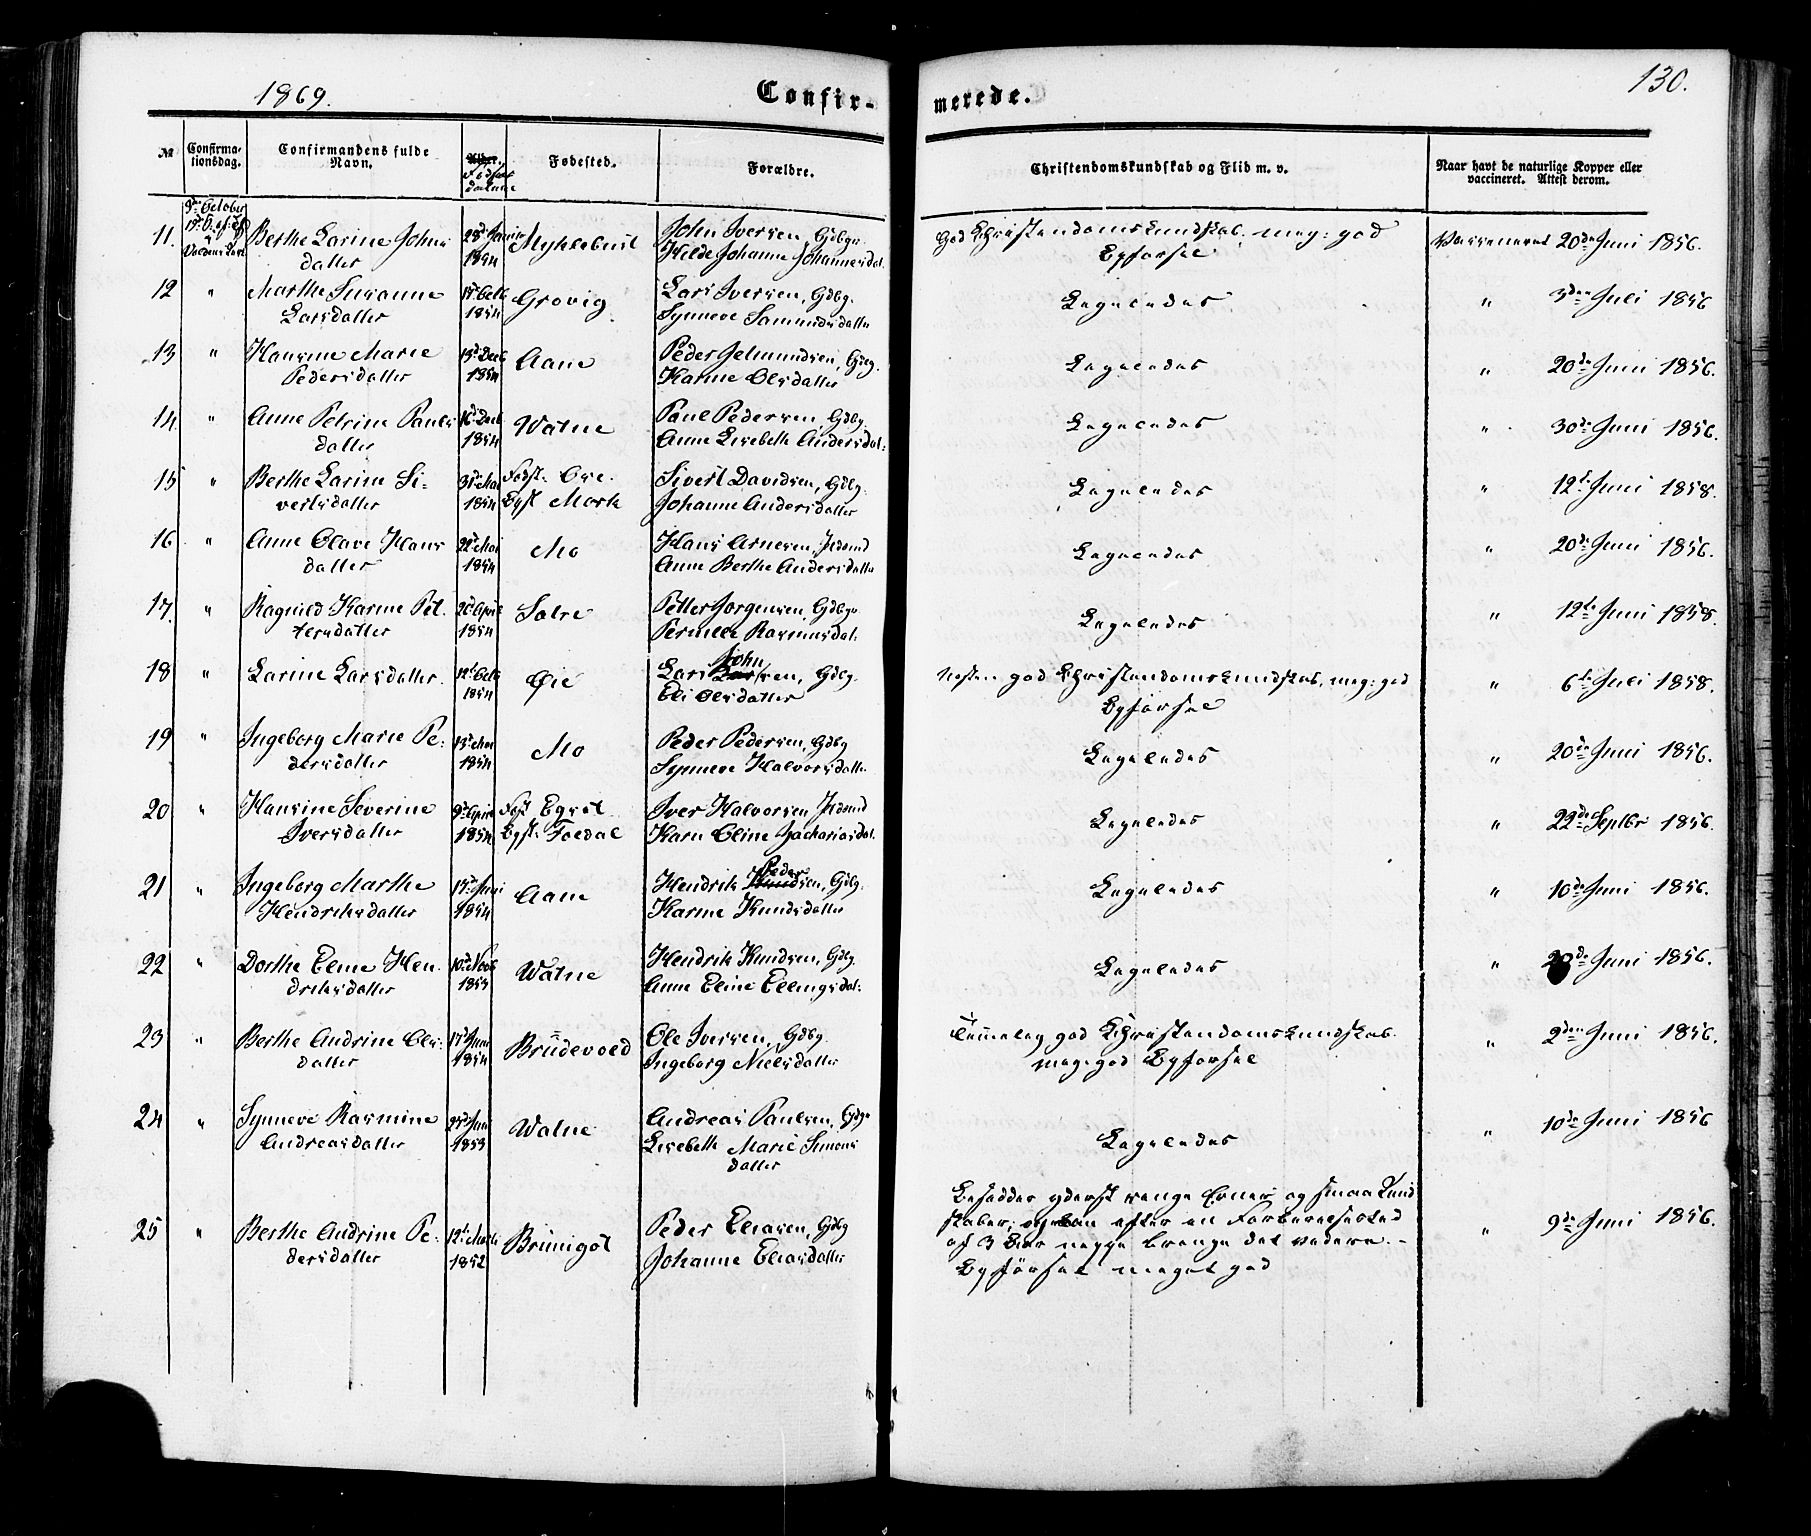 1869.
Confir-
merede.
130.
№
Confirma-
tionsdag.
Confirmandens fulde
Navn.
Alder.
Fødested.
Forældre.
Christendomskundskab og Flid m. v.
Naar havt de naturlige Kopper eller
vaccineret. Attest derom.
11.
Berthe Larine Johns
datter
1854
Myklebust
John Iversen, Gdbgr.
Hilde Johanne Johannesdat.
God Christendomskundskab, meg: god
Opførsel
Vaccineret 20de Juni 1856.
12 " Marthe Susanne
Larsdatter
15 Octb
1854
Grovig
Lars Iversen, Gdbg.
Synneve Samundsdatter
Ligeledes
" 3die Juli 1856
13 " Hansine Marie
Pedersdatter
13 Decb
1854
Aam
Peder Jetmundsen, Gdbg.
Karine Olsdatter
Ligeledes
" 20de Juni 1856.
14. " Anne Petrine Pauls
datter
16 Decb
1854
Watne
Paul Pedersen, Gdbg.
Anne Lisebeth Andersdat:
Ligeledes
" 30de Juni 1856.
15 " Berthe Larine Si-
vertsdatter
31 Mai
1854
Fødst. Ose.
Opf Mork
Sivert Davidsen, Gdbg.
Johanne Andersdatter
Ligeledes
" 12te Juni 1858.
16 " Anne Olave Hans
datter
22 Mai
1854
Mo
Hans Arnesen,
Anne Berthe Andersdatter
Ligeledes
" 20de Juni 1856.
17. " Ragnild Karine Pet
tersdatter
April
1854
Sætre
Petter Jørgensen, Gdbgr
Pernille Rasmusdat:
Ligeledes
" 12te Juni 1858.
18 " Larine Larsdatter
12 Octb
1854
Øie
John
Lars Larsen, Gdbg.
Eli Olsdatter
Næsten god Christendomskundskab, meg: god
Opførsel
" 6te Juli 1858.
19 " Ingeborg Marie Pe-
dersdatter
13 Mai
1854
Mo
Peder Pedersen, Gdbg
Synneve Halvorsdatter
Ligeledes
" 20de Juni 1856.
20 " Hansine Severine
Iversdatter
9 April
1854
Føst Egset
Opf: Foldal
Iver Halvorsen
Karn Oline Zachariasdat.
Ligeledes
" 22de Septbr 1856.
21 " Ingeborg Marthe
Hendriksdatter
15 Juni
1854
Aam
Peder
Hendrik Knudsen, Gdbg.
Karine Knudsdatter
Ligeledes
" 10de Juni 1856.
22 " Dorthe Eline Hen-
driksdatter
10 Novb
1853
Watne
Hendrik Knudsen, Gdbg
Anne Eline Ellingsdat:
Ligeledes
" 20de Juni 1856.
23 " Berthe Andrine Ols-
datter
17 Juni
1854
Brudevold
Ole Iversen, Gdbg.
Ingeborg Nielsdatter
Temmelig god Christendomskundskab.
meg. god Opførsel
" 2den Juni 1856.
24 " Synneve Rasmine
Andreasdatter
25 Juni
1853
Watne
Andreas Paulsen, Gdbgr
Lisebeth Marie Simons
datter
Ligeledes
" 10de Juni 1856
25 " Berthe Andrine Pe-
dersdatter
12te
1852
Brunigot
Peder Eliasen, Gdbg
Johanne Eliasdatter
Besidder yderst ringe Evner og smaa Kund
skaber, efter en Forberedelsestid
af 3 Aar neppe bringe det videre. -
Opførsel meget god
" 9de Juni 1856.